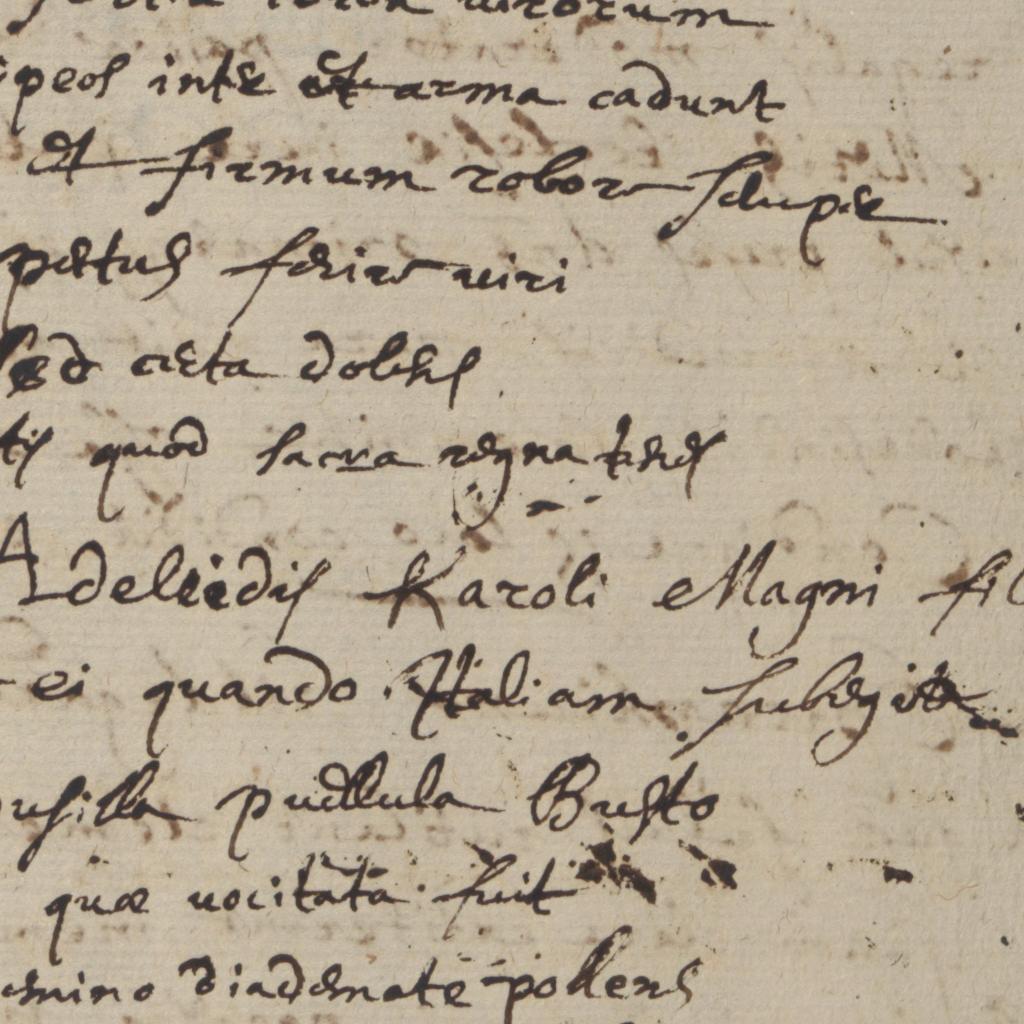 virorum
ipeos inter et arma cadunt
Et firmum robore saepe
petus ferire viri
sed certa dolens
tis quod sacra regna tenes
Adeleidis Karoli Magni fil
ei quando Italiam subegit
usilla puellula Busto
quæ vocitata fuit
emino diademate pollens